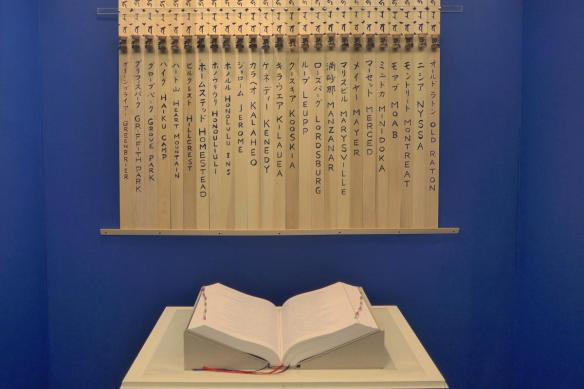 グリーンブライア GREENBRIER
グリフィスパーク GRIFFITH PARK
グローブパーク GROVE PARK
ハイク HAIKU CAMP
ハート山 HEART MOUNTAIN
ヒルクレスト HILLCREST
ホームステッド HOMESTEAD
ホノウリウリ HONOULIULI
ホノルル HONOLULU INS
ジェローム JEROME
カラヘオ KALAHEO
ケネディー KENEDY
キラウエア KILAUEA
クースキア KOOSKIA
ループ LEUPP
ローズバーグ LORDSBURG
満砂那 MANZANAR
マリスビル MARYSVILLE
メイヤー MAYER
マーセット MERCED
ミニドカ MINIDOKA
モアブ MOAB
モントリート MONTREAT
ニッサ NYSSA
オールド ラトン OLD RATON